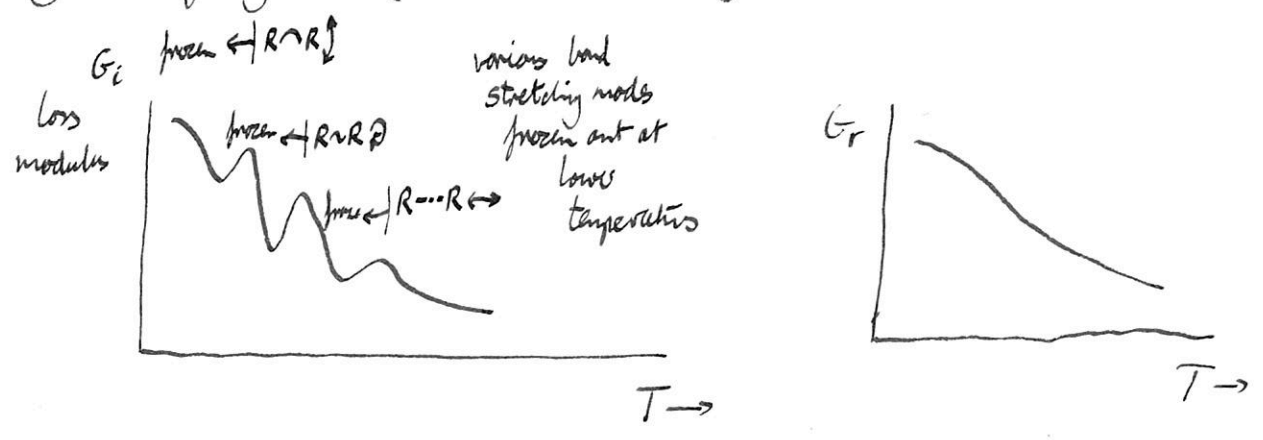 frozen ←| R⌒R ↕
G_i
loss
modulus
frozen ←| R~R
froze ←| R----R ↔
various bond
stretching modes
frozen out at
lower
temperatures
T →
G_r
T →